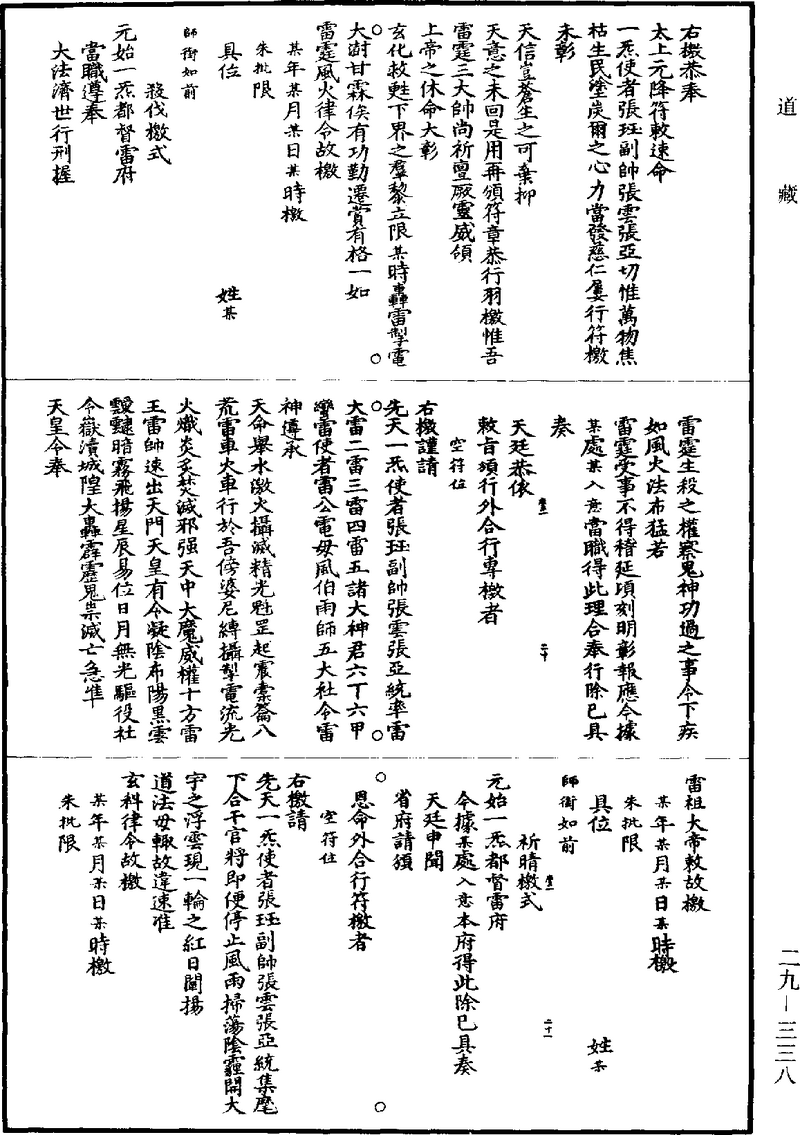 道藏
右檄恭奉
太上元降符敕速命
一炁使者張珏副帥張雲張亞切惟萬物焦
枯生民塗炭爾之心力當發慈仁屢行符檄
未彰
天信豈蒼生之可棄抑
天意之未回是用再頒符章恭行羽檄惟吾
雷霆三大帥尚祈亶厥靈威領
上帝之休命大彰
玄化救甦下界之羣黎立限某時轟雷掣電
大澍甘霖俟有功勤遷賞有格一如
雷霆風火律令故檄
某年某月某日某時檄
朱批限
具位 姓某
師銜如前
殺伐檄式
元始一炁都督雷府
當職遵奉
大法濟世行刑握
雷霆生殺之權察鬼神功過之事令下疾
如風火法布猛若
雷霆受事不得稽延頃刻明彰報應今據
某處某入意當職得此理合奉行除已具
奏
天廷恭俟
敕旨頒行外合行專檄者
空符位
右檄謹請
先天一炁使者張珏副帥張雲張亞統率雷
大雷二雷三雷四雷五諸大神君六丁六甲
蠻雷使者雷公電母風伯雨師五大社令雷
神遵承
天命舉水激火攝滅精光魁罡起震橐籥八
荒雷車火車行於吾傍婆尼縛攝掣電流光
火熾炎炙焚滅邪强天中大魔威權十方雷
王雷帥速出天門天皇有令凝陰布陽黑雲
靉靆暗霧飛揚星辰易位日月無光驅役社
令嶽瀆城隍大轟霹靂鬼祟滅亡急準
天皇令奉
雷祖大帝敕故檄
某年某月某日某時檄
朱批限
具位 姓某
師銜如前
祈晴檄式
元始一炁都督雷府
今據某處入意本府得此除已具奏
天廷申聞
省府請頒
恩命外合行符檄者
空符位
右檄請
先天一炁使者張珏副帥張雲張亞統集麾
下合干官將即便停止風雨掃蕩陰霾開大
宇之浮雲現一輪之紅日闡揚
道法毋輒故違速准
玄科律令故檄
某年某月某日某時檄
朱批限
二九―三三八